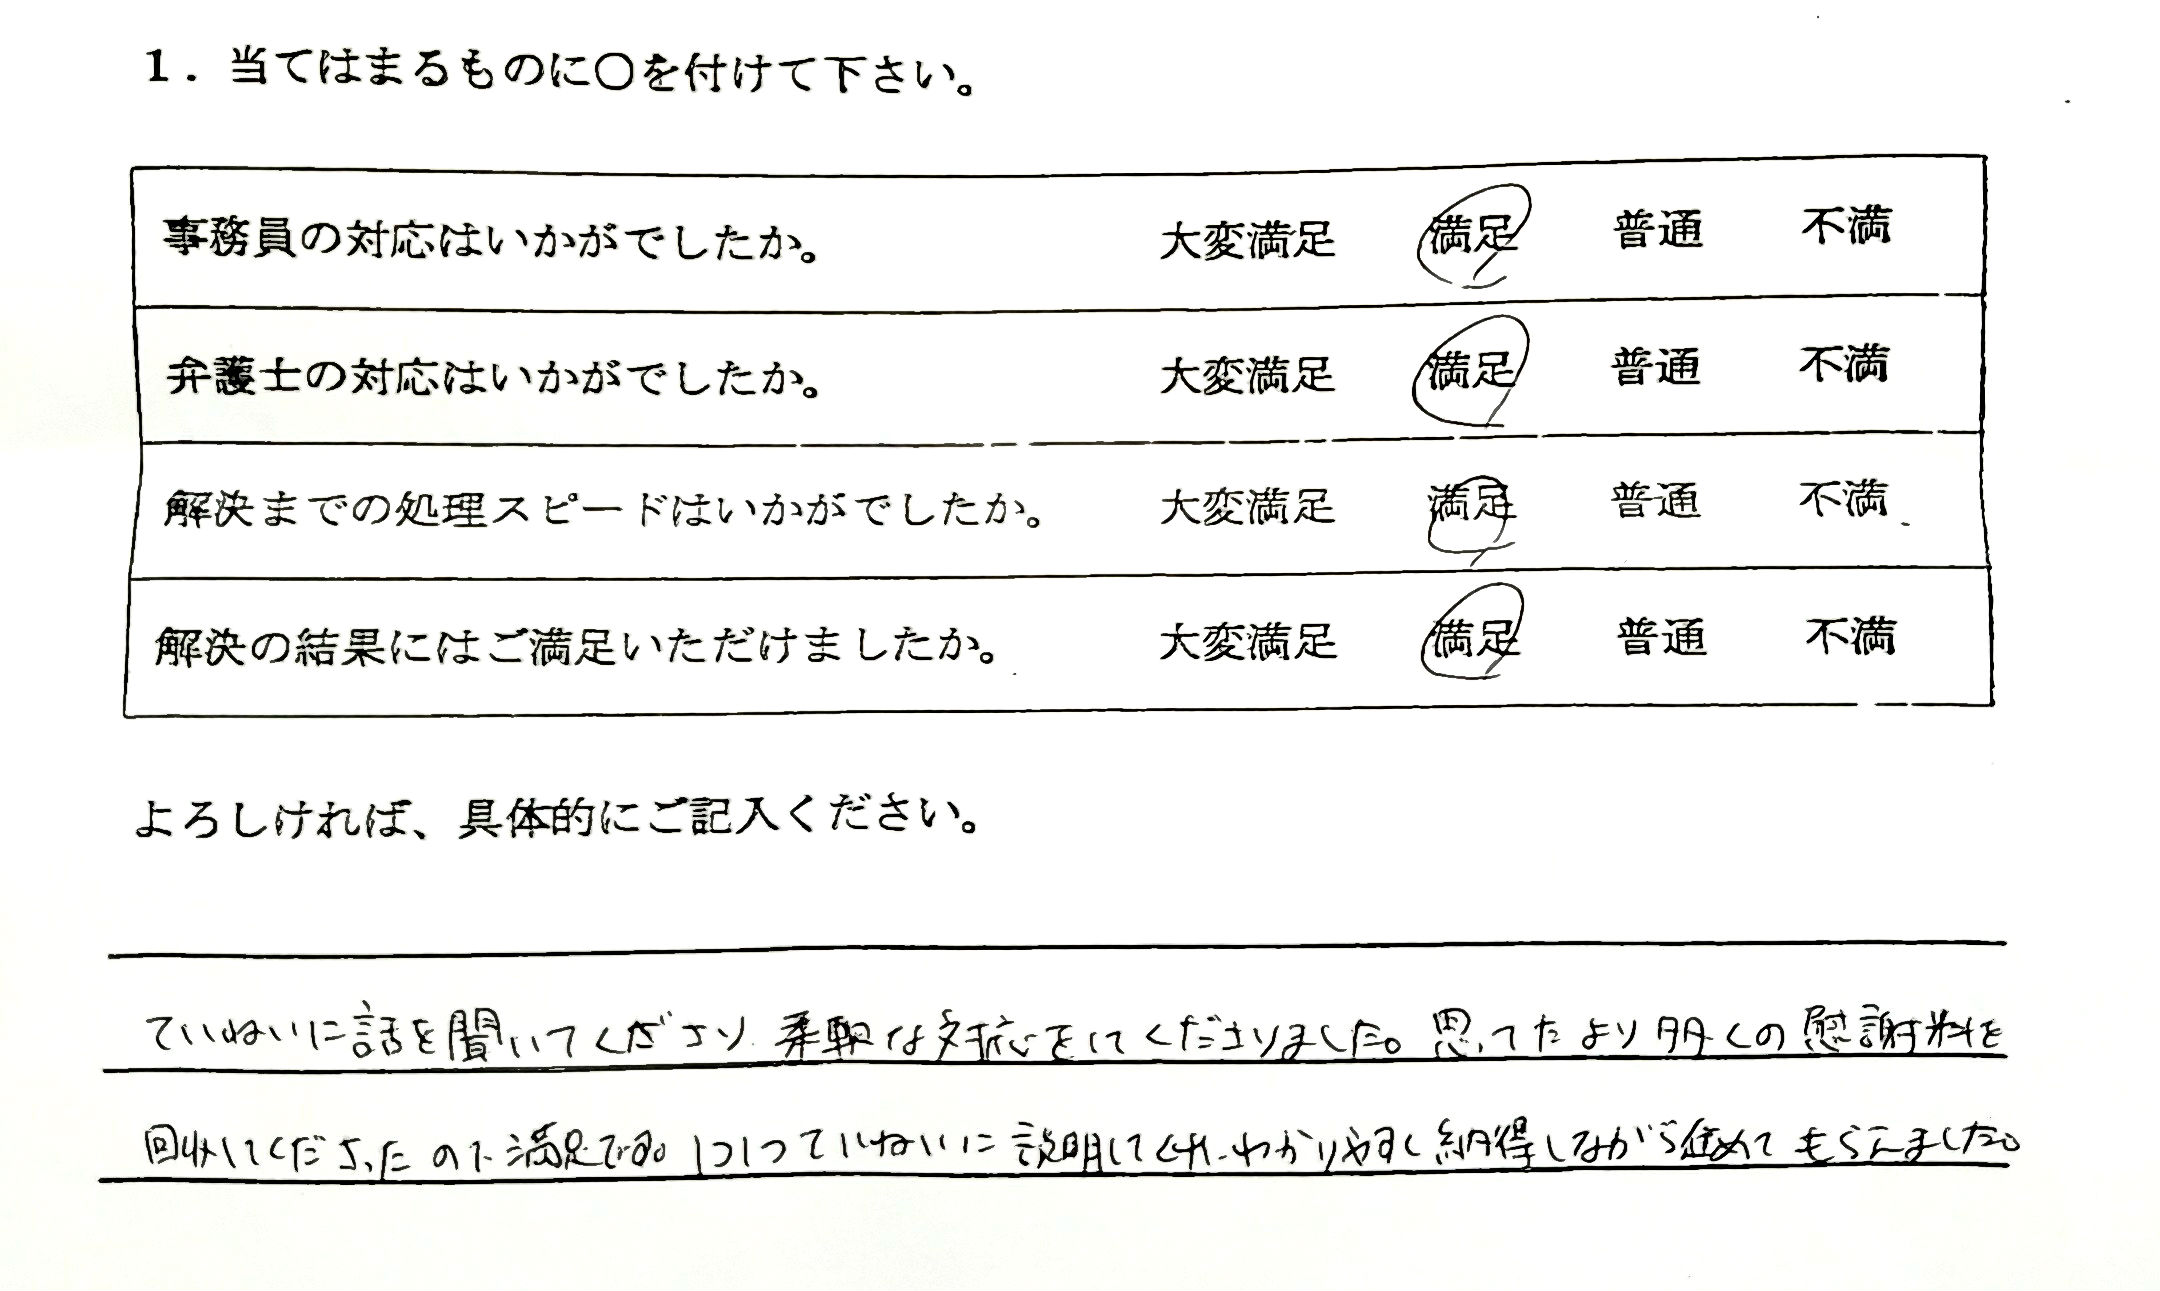 1．当てはまるものに〇を付けて下さい。
事務員の対応はいかがでしたか。 大変満足 満足 普通 不満
弁護士の対応はいかがでしたか。 大変満足 満足 普通 不満
解決までの処理スピードはいかがでしたか。 大変満足 満足 普通 不満
解決の結果にはご満足いただけましたか。 大変満足 満足 普通 不満
よろしければ、具体的にご記入ください。
ていねいに話を聞いてくださり、柔軟な対応をしてくださりました。思ってたより多くの慰謝料を
回収してくださったので満足です。1つ1つていねいに説明してくれ、わかりやすく納得しながら進めてもらえました。